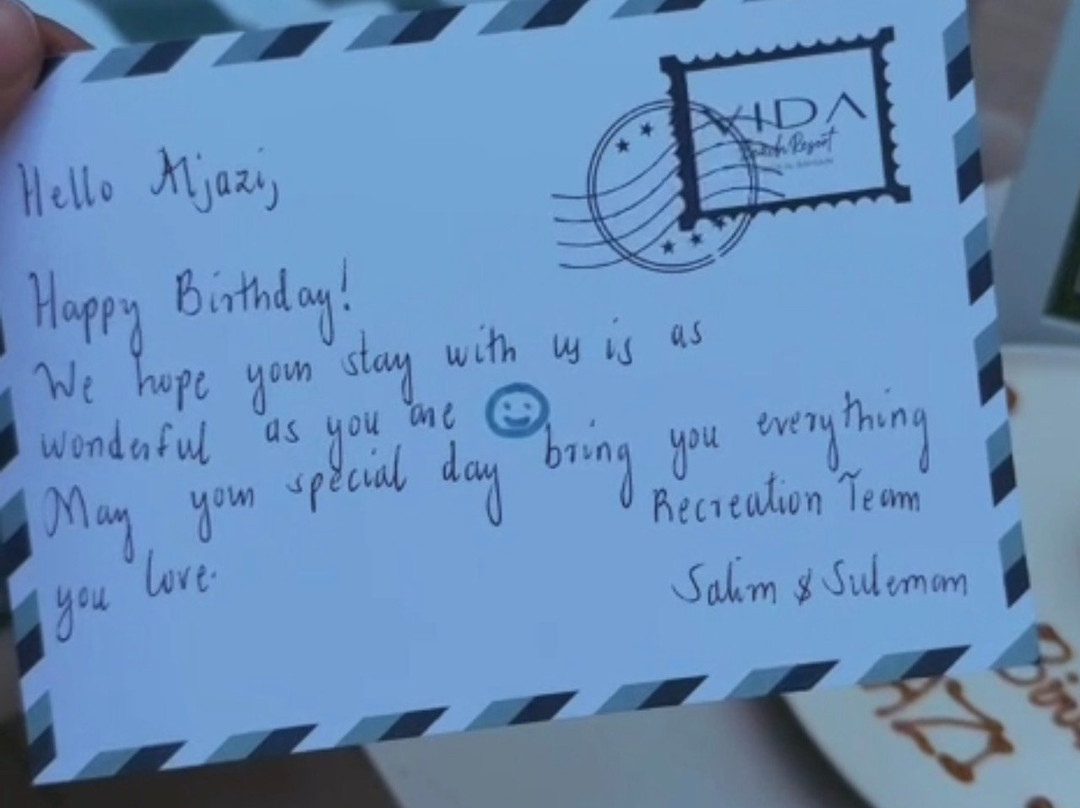 VIDA
Beach Resort
Hello Aljazi,
Happy Birthday!
We hope your stay with us is as
wonderful as you are
May your special day bring you everything
you love.
Recreation Team
Salim & Suleman
Bir
AZI